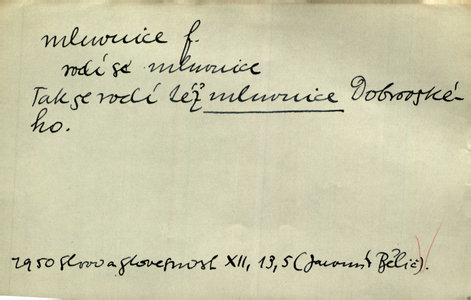 mluvnice f.
rodí se mluvnice
Tak se rodí též mluvnice Dobrovské-
ho.
1950 Slovo a slovesnost XII, 13, 5 (Jaromír Bělič).